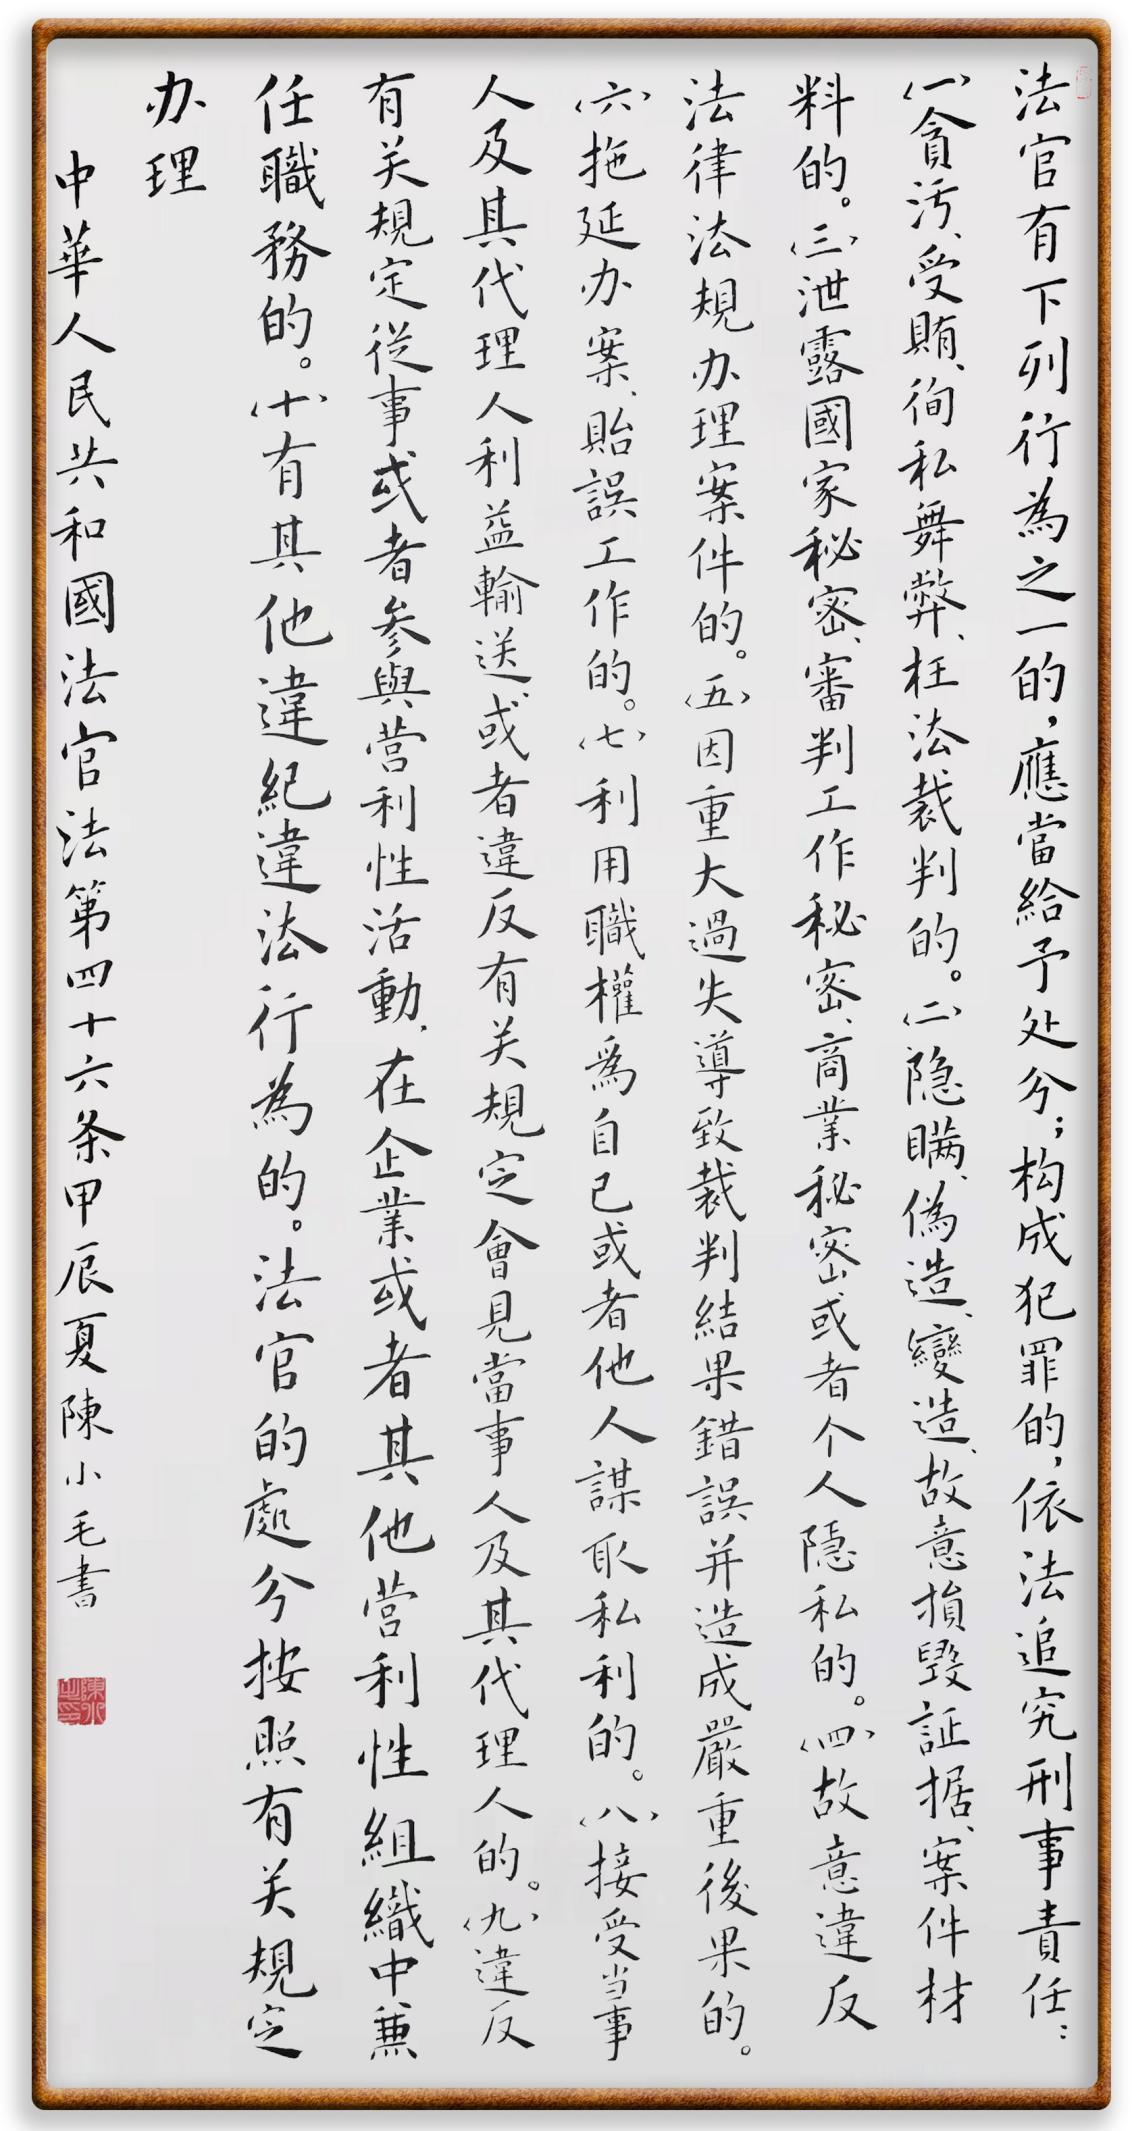 法官有下列行為之一的，應當給予处分；构成犯罪的，依法追究刑事責任：
（一）貪污、受賄、徇私舞弊、枉法裁判的。（二）隐瞒、偽造、變造、故意損毁証据、案件材
料的。（三）泄露國家秘密、審判工作秘密、商業秘密或者个人隱私的。（四）故意違反
法律法規办理案件的。（五）因重大過失導致裁判結果錯誤并造成嚴重後果的。
（六）拖延办案、貽誤工作的。（七）利用職權爲自己或者他人謀取私利的。（八）接受当事
人及其代理人利益輸送、或者違反有关規定會見當事人及其代理人的。（九）違反
有关規定從事或者参與营利性活動，在企業或者其他营利性組織中兼
任職務的。（十）有其他違紀違法行為的。法官的處分按照有关規定
办理
中華人民共和國法官法第四十六条甲辰夏陳小毛書